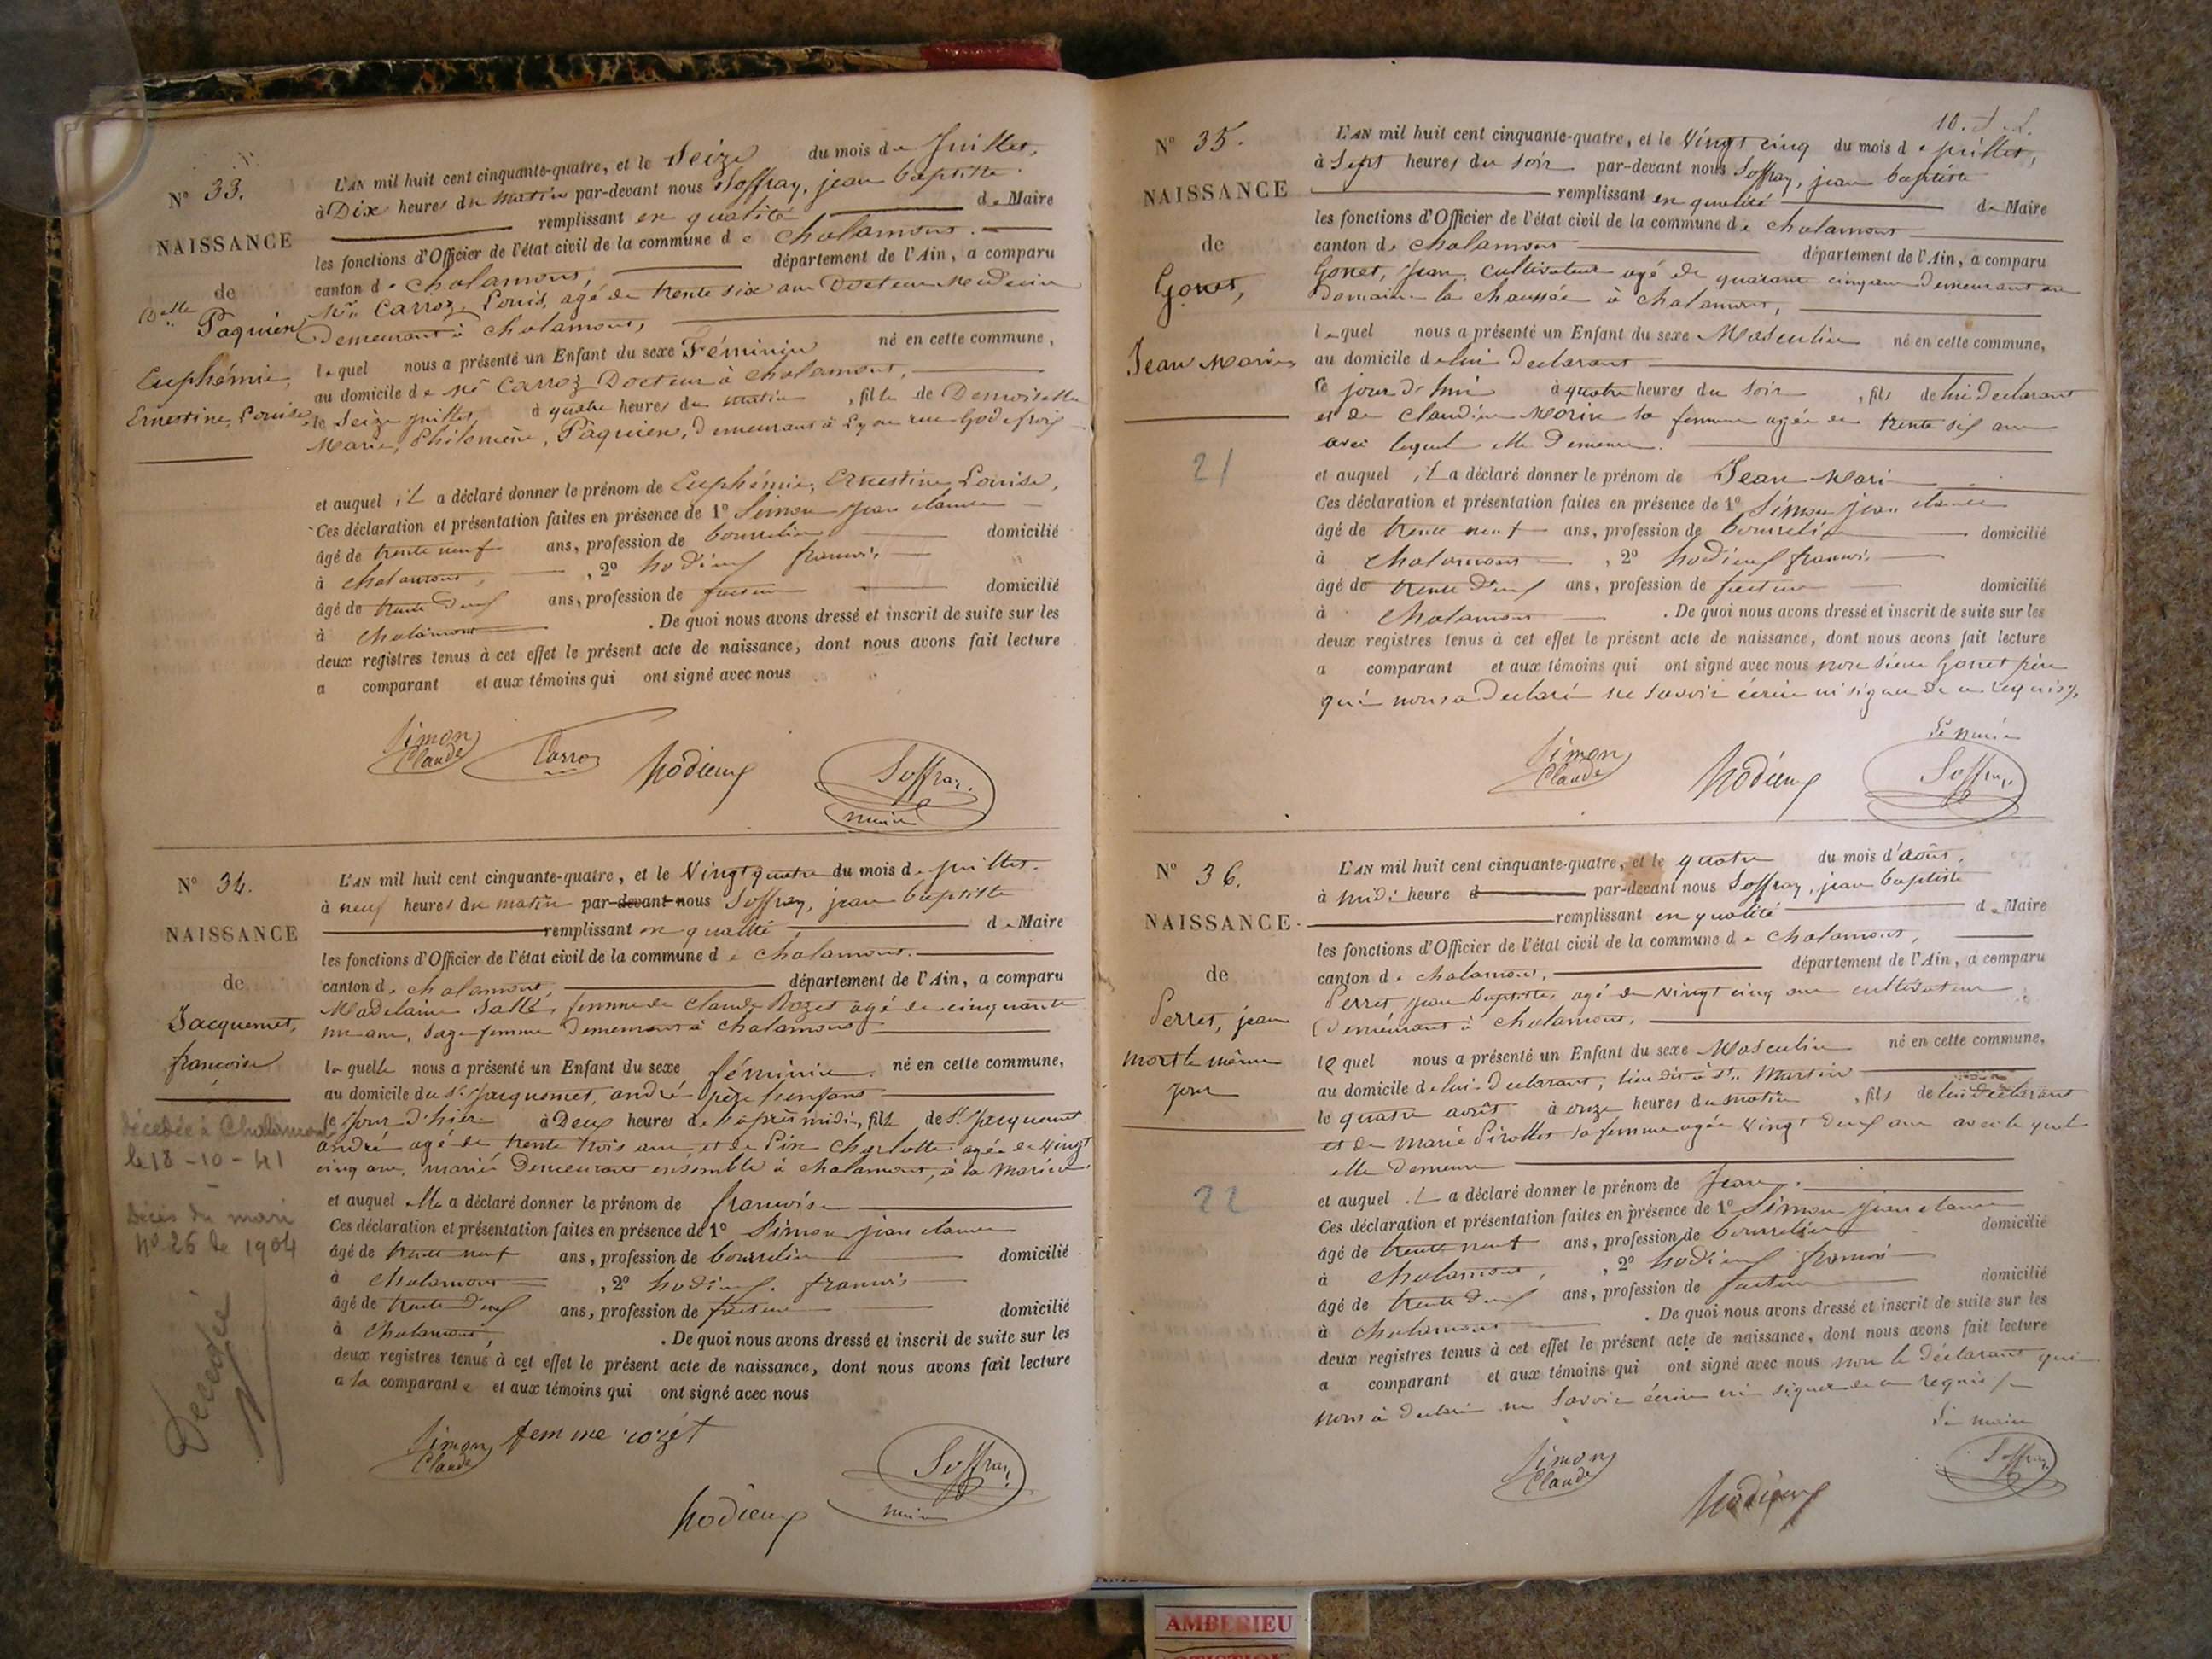 N° 33.
NAISSANCE
de
Delle
Paquien,
Euphémie,
Ernestine, Louise
L'AN mil huit cent cinquante-quatre, et le Seize du mois de Juillet,
à Dix heures du matin par-devant nous Soffray, jean baptiste
remplissant en qualité de Maire
les fonctions d'Officier de l'état civil de la commune de Chalamont.
canton de Chalamont, département de l'Ain, a comparu
Mr. Carroz, Louis, agé de trente six ans Docteur Medecin
Demeurant à Chalamont,
lequel nous a présenté un Enfant du sexe Féminin né en cette commune,
au domicile de Mr Carroz Docteur à Chalamont,
le Seize juillet, à quatre heures du matin, fille de Demoiselle
Marie, Philomène, Paquien, Demeurant à Lyon rue Godefroy
et auquel il a déclaré donner le prénom de Euphémie, Ernestine Louise,
Ces déclaration et présentation faites en présence de 1° Simon jean claude
âgé de trente neuf ans, profession de bourrelier domicilié
à Chalamont, , 2° hodieux francois
âgé de trente Deux ans, profession de facteur domicilié
à Chalamont . De quoi nous avons dressé et inscrit de suite sur les
deux registres tenus à cet effet le présent acte de naissance, dont nous avons fait lecture
a comparant et aux témoins qui ont signé avec nous
Simon
Claude
Carroz
hodieux
Soffray
maire
N° 34.
NAISSANCE
de
Jacquemet,
francoise
décédée à Chalamont
le 18-10-41
Décès du mari
N° 26 de 1904
Decedée
L'AN mil huit cent cinquante-quatre, et le Vingt quatre du mois de juillet.
à neuf heures du matin par-devant nous Soffray, jean baptiste
remplissant en qualité de Maire
les fonctions d'Officier de l'état civil de la commune de Chalamont.
canton de Chalamont, département de l'Ain, a comparu
Madelaine Sallé, femme de Claude Rozet agé de cinquante
un ans, Sage femme Demeurant à Chalamont
laquelle nous a présenté un Enfant du sexe féminin né en cette commune,
au domicile du Sr Jacquemet, andré père l'enfant
le jour d'hier à Deux heures de l'après midi, fille de Sr Jacquemet
andré agé de trente trois ans et de Charlotte agée de Vingt
cinq ans, mariés Demeurant ensemble à Chalamont, à la
et auquel elle a déclaré donner le prénom de francoise
Ces déclaration et présentation faites en présence de 1° Simon jean claude
âgé de trente neuf ans, profession de bourrelier domicilié
à Chalamont , 2° hodieux francois
âgé de trente Deux ans, profession de facteur domicilié
à Chalamont, . De quoi nous avons dressé et inscrit de suite sur les
deux registres tenus à cet effet le présent acte de naissance, dont nous avons fait lecture
a la comparante et aux témoins qui ont signé avec nous
Simon
Claude
femme rozet
hodieux
Soffray
maire
10.
N° 35.
NAISSANCE
de
Gonet,
Jean Marie
21
L'AN mil huit cent cinquante-quatre, et le Vingt cinq du mois de juillet,
à Sept heures du soir par-devant nous Soffray, jean baptiste
remplissant en qualité de Maire
les fonctions d'Officier de l'état civil de la commune de Chalamont
canton de Chalamont département de l'Ain, a comparu
Gonet, Jean, Cultivateur agé de quarante cinq ans Demeurant au
Domaine la Chaussée à Chalamont,
lequel nous a présenté un Enfant du sexe Masculin né en cette commune,
au domicile de lui Declarant
le jour d'hui à quatre heures du soir, fils de lui Declarant
et de Claudine Morin sa femme agée de trente six ans
avec lequel elle Demeure.
et auquel il a déclaré donner le prénom de Jean Marie
Ces déclaration et présentation faites en présence de 1° Simon jean claude
âgé de trente neuf ans, profession de bourrelier domicilié
à Chalamont , 2° hodieux francois
âgé de trente Deux ans, profession de facteur domicilié
à Chalamont . De quoi nous avons dressé et inscrit de suite sur les
deux registres tenus à cet effet le présent acte de naissance, dont nous avons fait lecture
a comparant et aux témoins qui ont signé avec nous non sieur Gonet père
qui nous a Declaré ne savoir écrire ni signer de ce requis.
Simon
Claude
hodieux
le maire
Soffray
N° 36.
NAISSANCE
de
Perret, jean
mort le même
jour
22
L'AN mil huit cent cinquante-quatre, et le quatre du mois d'août,
à midi heure d par-devant nous Soffray, jean baptiste
remplissant en qualité de Maire
les fonctions d'Officier de l'état civil de la commune de Chalamont,
canton de Chalamont, département de l'Ain, a comparu
Perret jean baptiste, agé de vingt cinq ans cultivateur
Demeurant à Chalamont,
lequel nous a présenté un Enfant du sexe Masculin né en cette commune,
au domicile de lui Declarant, lieu dit à St. Martin
le quatre août à onze heures du matin, fils de lui Declarant
et de Marie Pirollet sa femme agée Vingt Deux ans avec lequel
elle demeure
et auquel il a déclaré donner le prénom de Jean.
Ces déclaration et présentation faites en présence de 1° Simon jean claude
âgé de trente neuf ans, profession de bourrelier domicilié
à Chalamont, , 2° hodieux francois
âgé de trente Deux ans, profession de facteur domicilié
à Chalamont . De quoi nous avons dressé et inscrit de suite sur les
deux registres tenus à cet effet le présent acte de naissance, dont nous avons fait lecture
a comparant et aux témoins qui ont signé avec nous non le Déclarant qui
nous à Declaré ne Savoir écrire ni signer de ce requis
Simon
Claude
hodieux
le maire
Soffray
AMBERIEU